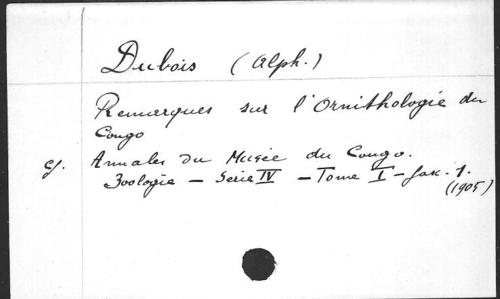 Dubois (Alph.)
Remarques sur l'Ornithologie du
Congo
cf. Annales du Musée du Congo.
Zoologie — Serie IV — Tome I — fasc. 1.
(1905)